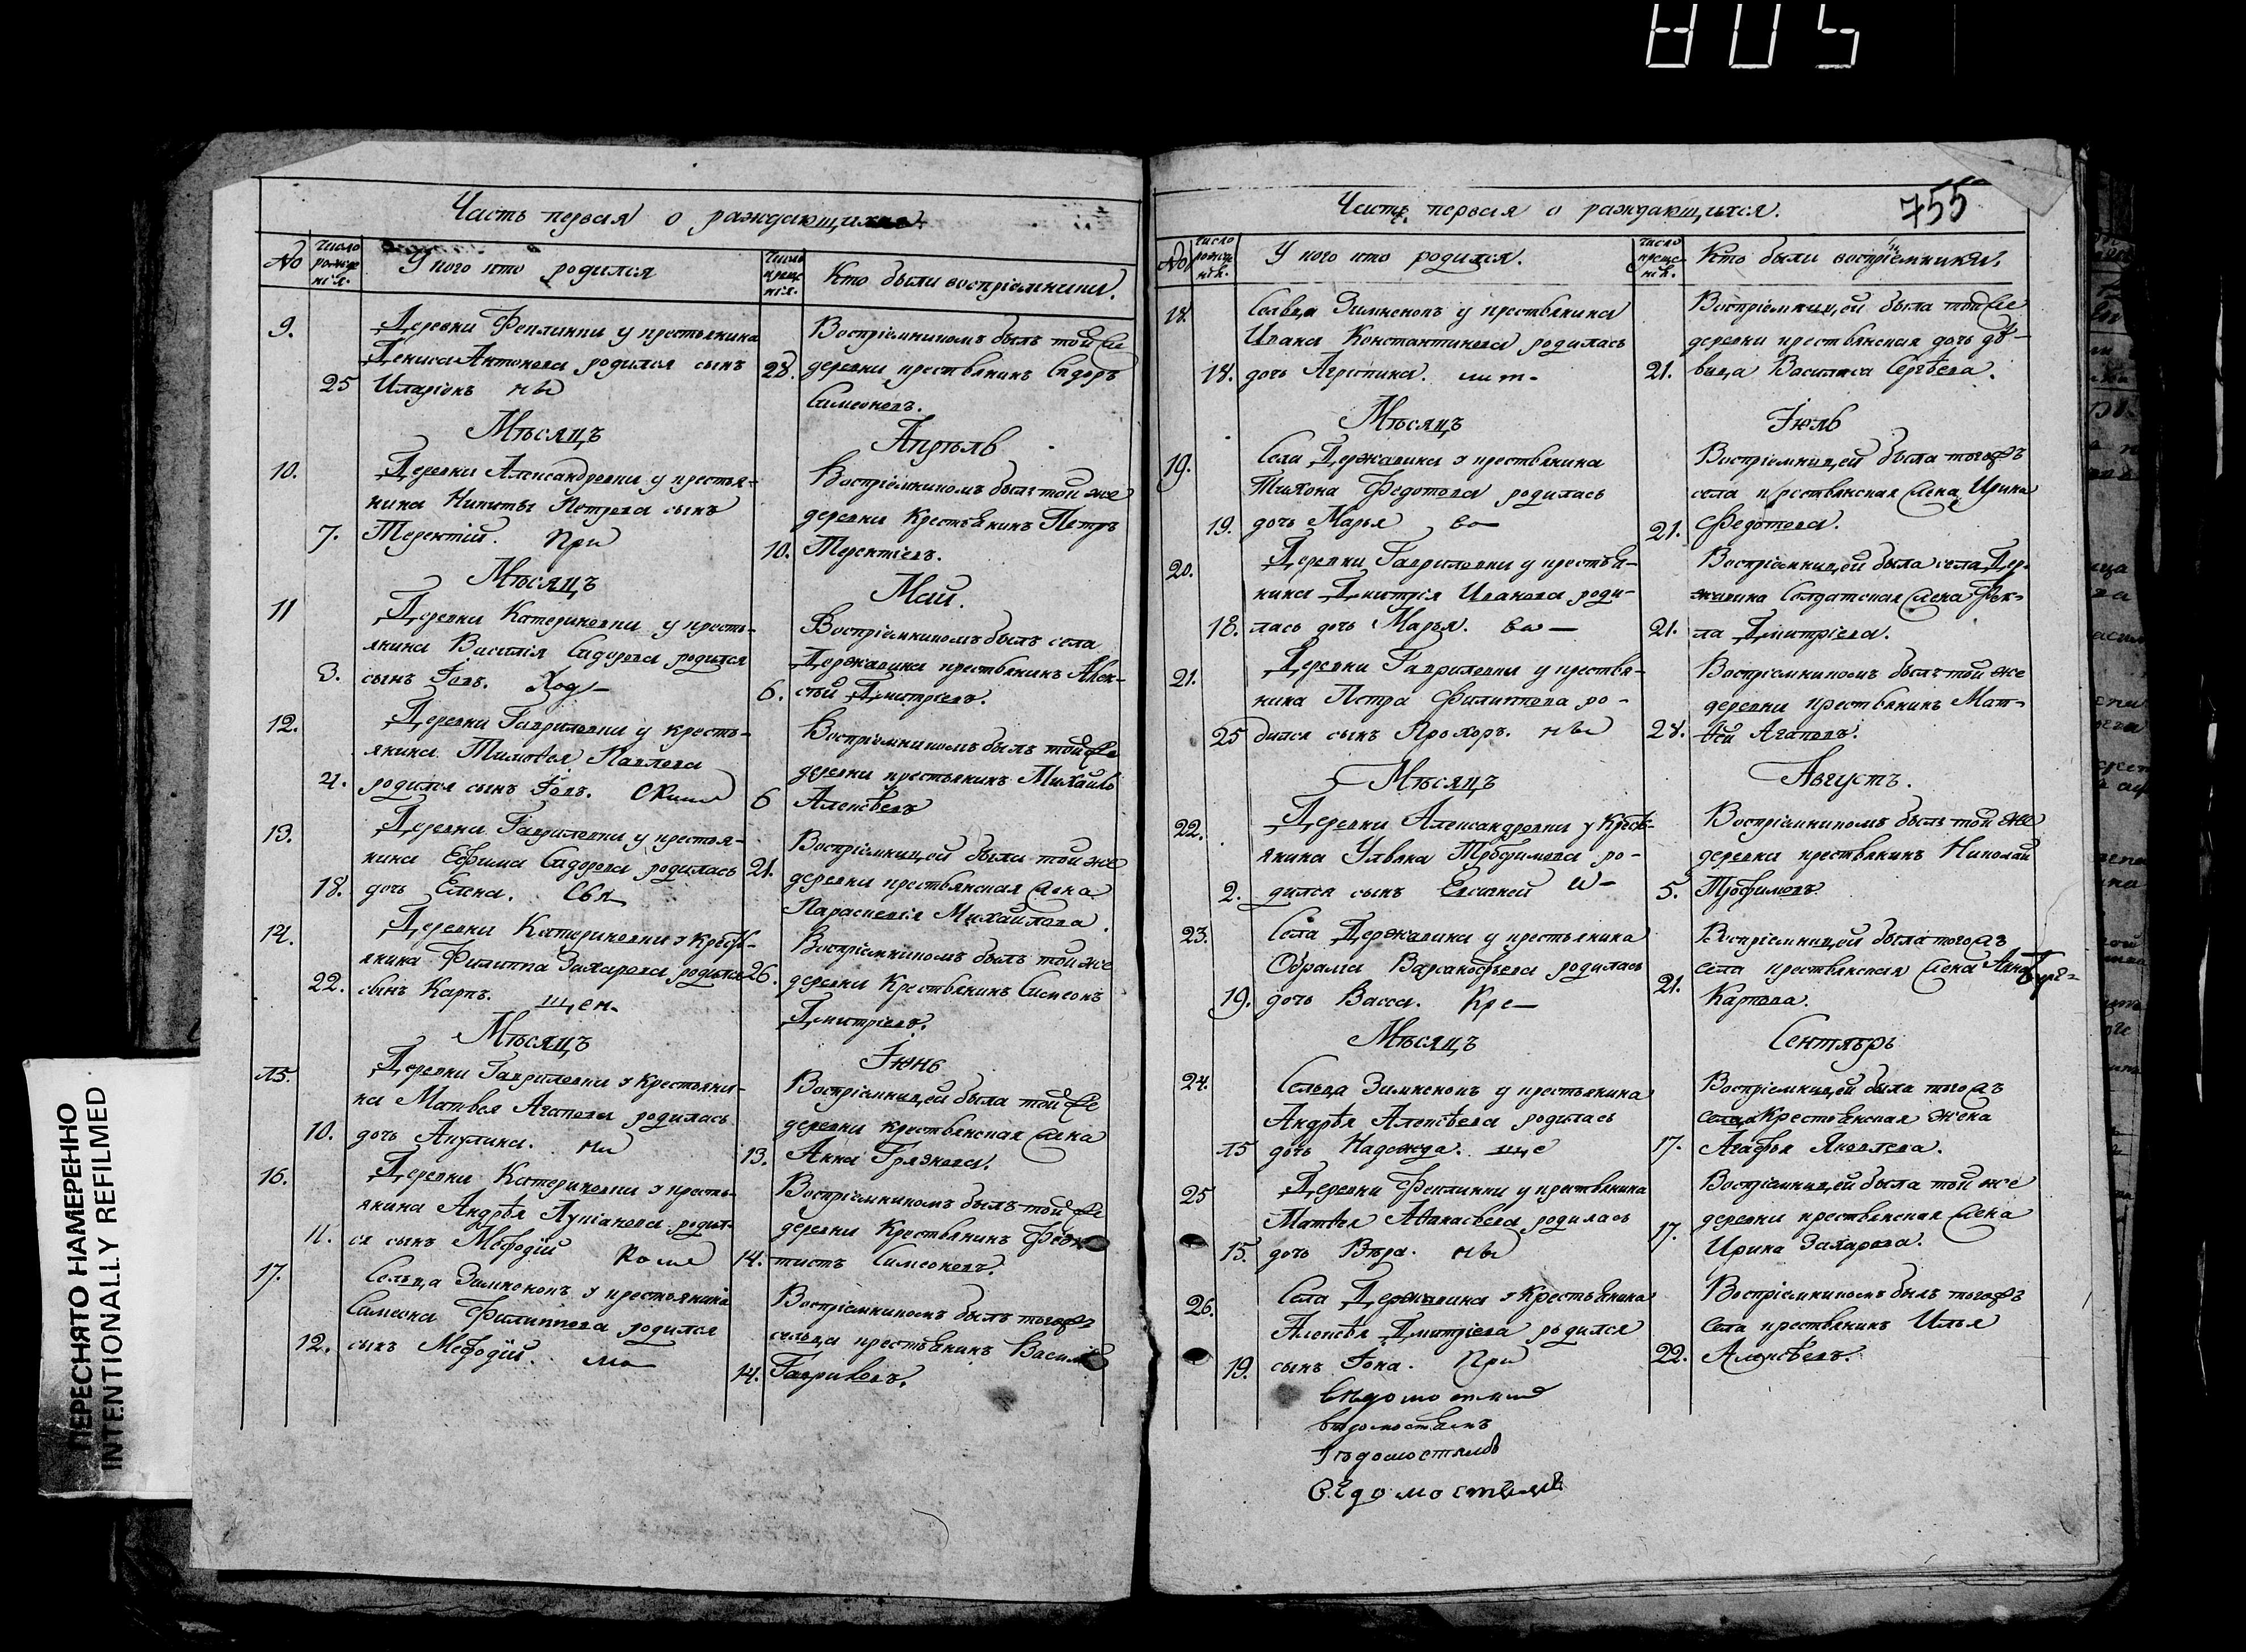 805
ПЕРЕСНЯТО НАМЕРЕННО
INTENTIONALLY REFILMED
Часть первая о раждающихся
№
Число рожде нія.
У кого кто родился
Число креще нія.
Кто были воспріемники.
9.
Деревни Феклинки у крестьянина
Дениса Антонова родился сынъ
25 Иларіонъ
28.
Воспріемникомъ былъ той же
деревни крестьянинъ Сидоръ
Симеоновъ.
Мѣсяцъ
Апрѣль
10.
Деревни Александровки у кресть-
янина Никиты Петрова сынъ
7. Терентій. При
10.
Воспріемникомъ былъ той же
деревни Крестьянинъ Петръ
Терентіевъ.
Мѣсяцъ
Май.
11
Деревни Катериновки у кресть-
янина Василія Сидорова родился
3. сынъ Іовъ. Ход
6.
Воспріемникомъ былъ села
Державина крестьянинъ Алек-
сѣй Дмитріевъ.
12.
Деревни Гавриловки у кресть-
янина Тимоѳея Павлова
4. родился сынъ Іовъ.
6
Воспріемникомъ былъ той же
деревни крестьянинъ Михайло
Алексѣевъ
13.
Деревни Гавриловки у крестья-
нина Ефима Сидорова родилась
18. дочь Елена. Свя
21.
Воспріемницей была той же
деревни крестьянская жена
Параскевія Михайлова.
14.
Деревни Катериновки у Кресть-
янина Филиппа Захарова родился
22. сынъ Карпъ. щен
26.
Воспріемникомъ былъ той же
деревни Крестьянинъ Симеонъ
Дмитріевъ.
Мѣсяцъ
Іюнь
15.
Деревни Гавриловки у Крестьяни-
на Матвея Агапова родилась
10. дочь Акулина. ни
13.
Воспріемницей была той же
деревни крестьянская жена
Анна Грязнова.
16.
Деревни Катериновки у кресть-
янина Андрѣя Лукіанова родил-
11. ся сынъ Мефодій
14.
Воспріемникомъ былъ той же
деревни Крестьянинъ Феок
тистъ Симеоновъ.
17.
Сельца Зимненокъ у крестьянина
Симеона Филиппова родился
12. сынъ Мефодій. ма
14.
Воспріемникомъ былъ того же
сельца крестьянинъ Василій
Гавриловъ.
Часть первая о раждающихся.
755
№
Число рожде нія.
У кого кто родился.
Число креще нія.
Кто были воспріемники.
18.
Сельца Зимненокъ у крестьянина
Ивана Константинова родилась
18. дочь Агрепина.
21.
Воспріемницей была той же
деревни крестьянская дочь дѣ-
вица Василиса Сергѣева.
Мѣсяцъ
Іюль
19.
Села Державина у крестьянина
Тихона Федотова родилась
19. дочь Марья во
21.
Воспріемницей была того жъ
села крестьянская жена Ирина
Федотова.
20.
Деревни Гавриловки у крестья-
нина Дмитрія Иванова роди-
18. лась дочь Марья. ва
21.
Воспріемницей была села Дер-
жавина Солдатская жена Фек-
ла Дмитріева.
21.
Деревни Гавриловки у крестья-
нина Петра Филиппова ро-
25 дился сынъ Прохоръ.
28.
Воспріемникомъ былъ той же
деревни крестьянинъ Мат-
ѳѣй Агаповъ.
Мѣсяцъ
Августъ.
22.
Деревни Александровки у Кресть-
янина Ульяна Трофимова ро-
2. дился сынъ Евсигней и
5.
Воспріемникомъ былъ той же
деревни крестьянинъ Николай
Трофимовъ.
23.
Села Державина у крестьянина
Обрама Варѳаломѣева родилась
19. дочь Васса. Кре
21.
Воспріемницей была того жъ
села крестьянская жена Анна
Карпова.
Мѣсяцъ
Сентябрь
24.
Сельца Зимненокъ у крестьянина
Андрѣя Алексѣева родилась
15 дочь Надежда. ще
17.
Воспріемницей была того жъ
сельца Крестьянская жена
Агафья Яковлева.
25
Деревни Феклинки у крестьянина
Матѳея Аѳанасьева родилась
15. дочь Вѣра.
17.
Воспріемницей была той же
деревни крестьянская жена
Ирина Захарова.
26.
Села Державина у Крестьянина
Алексѣя Дмитріева родился
19. сынъ Іона. При
22.
Воспріемникомъ былъ того жъ
села крестьянинъ Илья
Алексѣевъ.